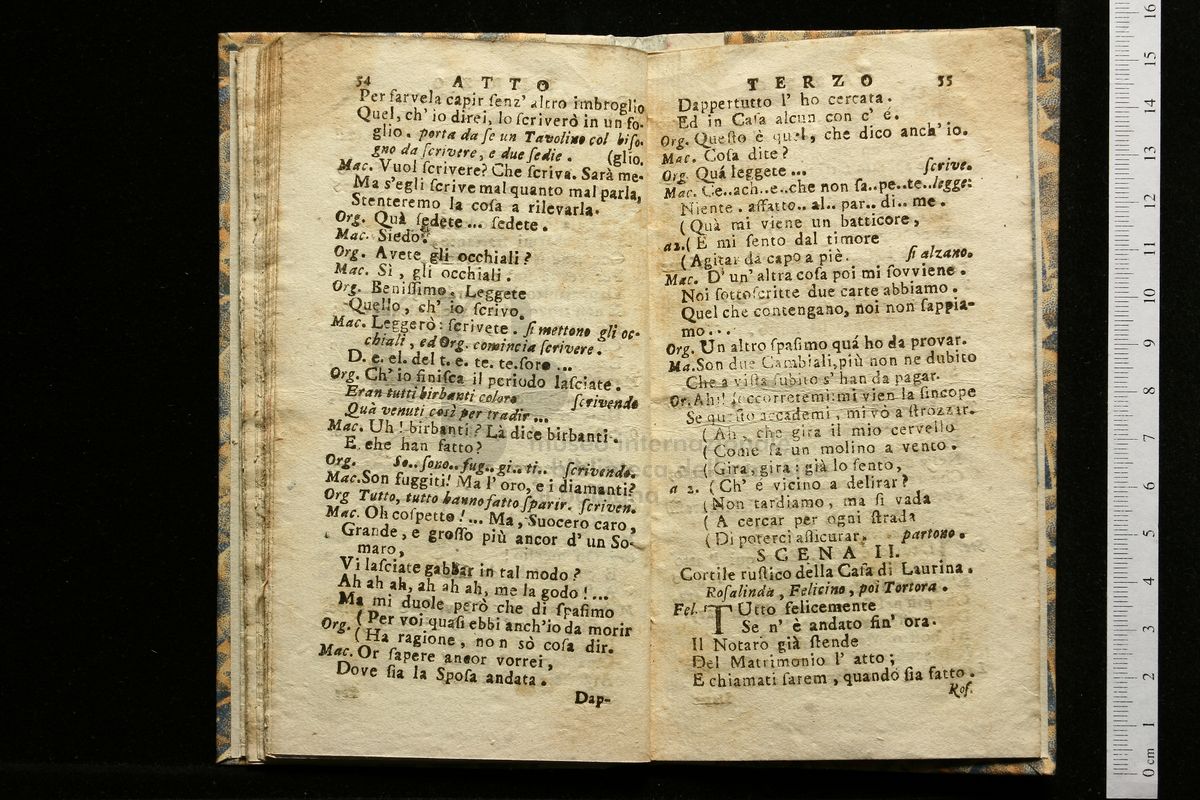 54 ATTO
Per farvela capir ſenz' altro imbroglio
Quel, ch' io direi, lo ſcriverò in un fo-
glio. porta da ſe un Tavolino col biſo-
gno da ſcrivere, e due ſedie. (glio.
Mac. Vuol ſcrivere? Che ſcriva. Sarà me-
Ma s'egli ſcrive mal quanto mal parla,
Stenteremo la coſa a rilevarla.
Org. Quà ſedete ... ſedete.
Mac. Siedo.
Org. Avete gli occhiali?
Mac. Sì, gli occhiali.
Org. Beniſſimo. Leggete
Quello, ch' io ſcrivo.
Mac. Leggerò: ſcrivete. ſi mettono gli oc-
chiali, ed Org. comincia ſcrivere.
D. e. el. del t. e. te. te.ſoro ...
Org. Ch' io finiſca il periodo laſciate.
Eran tutti birbanti coloro ſcrivendo
Quà venuti così per tradir ...
Mac. Uh! birbanti? Là dice birbanti.
E che han fatto?
Org. So.. ſono.. fug.. gi.. ti.. ſcrivendo.
Mac. Son fuggiti! Ma l' oro, e i diamanti?
Org Tutto, tutto hanno fatto ſparir. ſcriven.
Mac. Oh coſpetto! ... Ma, Suocero caro,
Grande, e groſſo più ancor d' un So-
maro,
Vi laſciate gabbar in tal modo?
Ah ah ah, ah ah ah, me la godo! ...
Ma mi duole però che di ſpaſimo
(Per voi quaſi ebbi anch'io da morir
Org. (Ha ragione, non sò coſa dir.
Mac. Or ſapere ancor vorrei,
Dove ſia la Spoſa andata.
Dap-
TERZO 55
Dappertutto l' ho cercata.
Ed in Caſa alcun con c' é.
Org. Queſto è quel, che dico anch' io.
Mac. Coſa dite?
Org. Quá leggete ... ſcrive.
Mac. Ce..ach..e..che non ſa..pe..te..legge:
Niente. affatto.. al.. par.. di.. me.
(Quà mi viene un batticore,
a 2. (E mi ſento dal timore
(Agitar da capo a piè. ſi alzano.
Mac. D' un' altra coſa poi mi ſovviene.
Noi ſottoſcritte due carte abbiamo.
Quel che contengano, noi non ſappia-
mo...
Org. Un altro ſpaſimo quá ho da provar.
Ma. Son due Cambiali, più non ne dubito
Che a viſta ſubito s' han da pagar.
Or. Ah! ſoccorretemi: mi vien la ſincope
Se queſto accademi, mi vò a ſtrozzar.
(Ah, che gira il mio cervello
(Come fa un molino a vento.
(Gira, gira; già lo ſento,
a 2. (Ch' è vicino a delirar?
(Non tardiamo, ma ſi vada
(A cercar per ogni ſtrada
(Di poterci aſſicurar. partono.
SCENA II.
Cortile ruſtico della Caſa di Laurina.
Roſalinda, Felicino, poi Tortora.
Fel. TUtto felicemente
Se n' è andato fin' ora.
Il Notaro già ſtende
Del Matrimonio l' atto;
E chiamati ſarem, quando ſia fatto.
Roſ.
museo internazionale
biblioteca de
0 cm 1 2 3 4 5 6 7 8 9 10 11 12 13 14 15 16